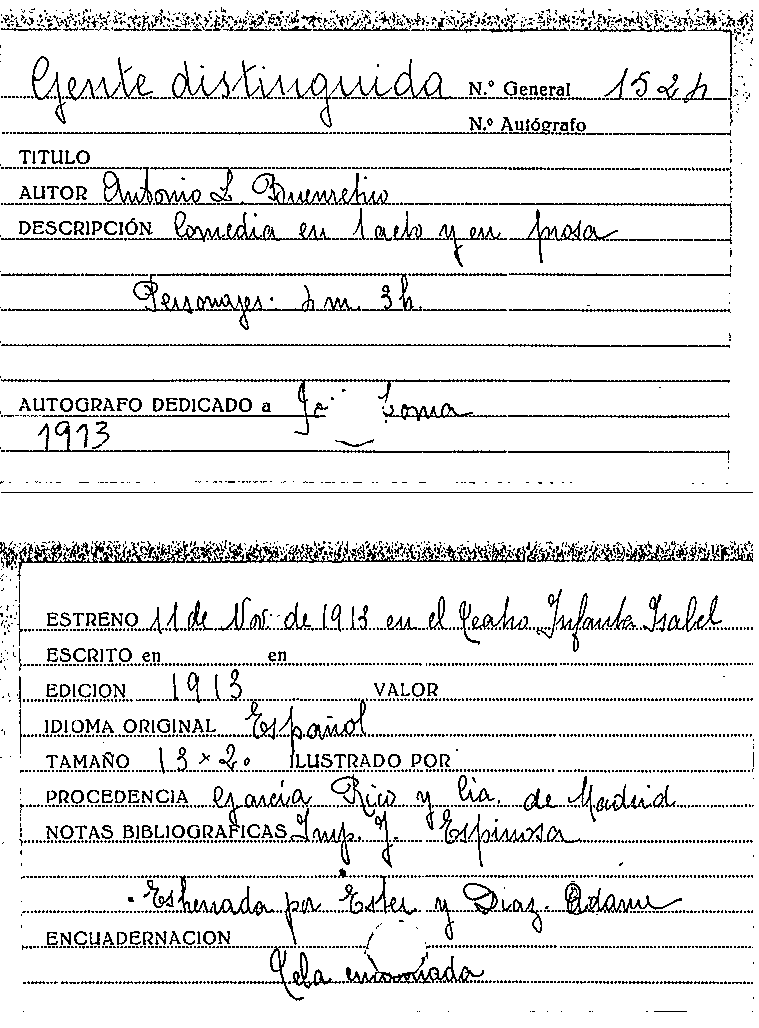 Gente distinguida Nº General 1524
Nº Autógrafo
TITULO
AUTOR Antonio L. Buenretiro
DESCRIPCIÓN Comedia en 1 acto y en prosa
Personajes: 4 m. 3 h.
AUTOGRAFO DEDICADO a Loma
1913
ESTRENO 11 de Nov. de 1913 en el Teatro Infanta Isabel
ESCRITO en en
EDICION 1913 VALOR
IDIOMA ORIGINAL Español
TAMAÑO 13 × 20 ILUSTRADO POR
PROCEDENCIA García Rico y Cia. de Madrid
NOTAS BIBLIOGRAFICAS Imp. J. Espinosa
Estrenada por Ester y Diaz. Adame
ENCUADERNACION
Tela